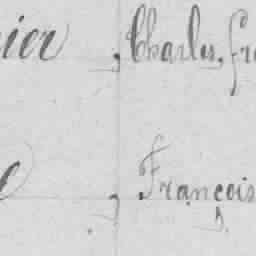 ier, Charles, fr
, François